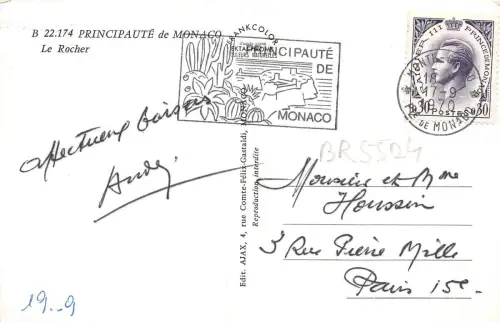 B 22.174 PRINCIPAUTÉ de MONACO
Le Rocher
KRANKCOLOR
EKTACHROME
PRINCIPAUTÉ
DE
MONACO
MONACO
RAINIER III PRINCE DE MONACO
18H
17-9
1970
DE MONACO
0.30 POSTES 0.30
Affectueux baisers
André
Edit. AJAX, 4, rue Comte-Félix-Castaldi,
Reproduction interdite
BR5524
Monsieur et Mme
Houssin
3 Rue Pierre Mille
Paris 15e.
19-9